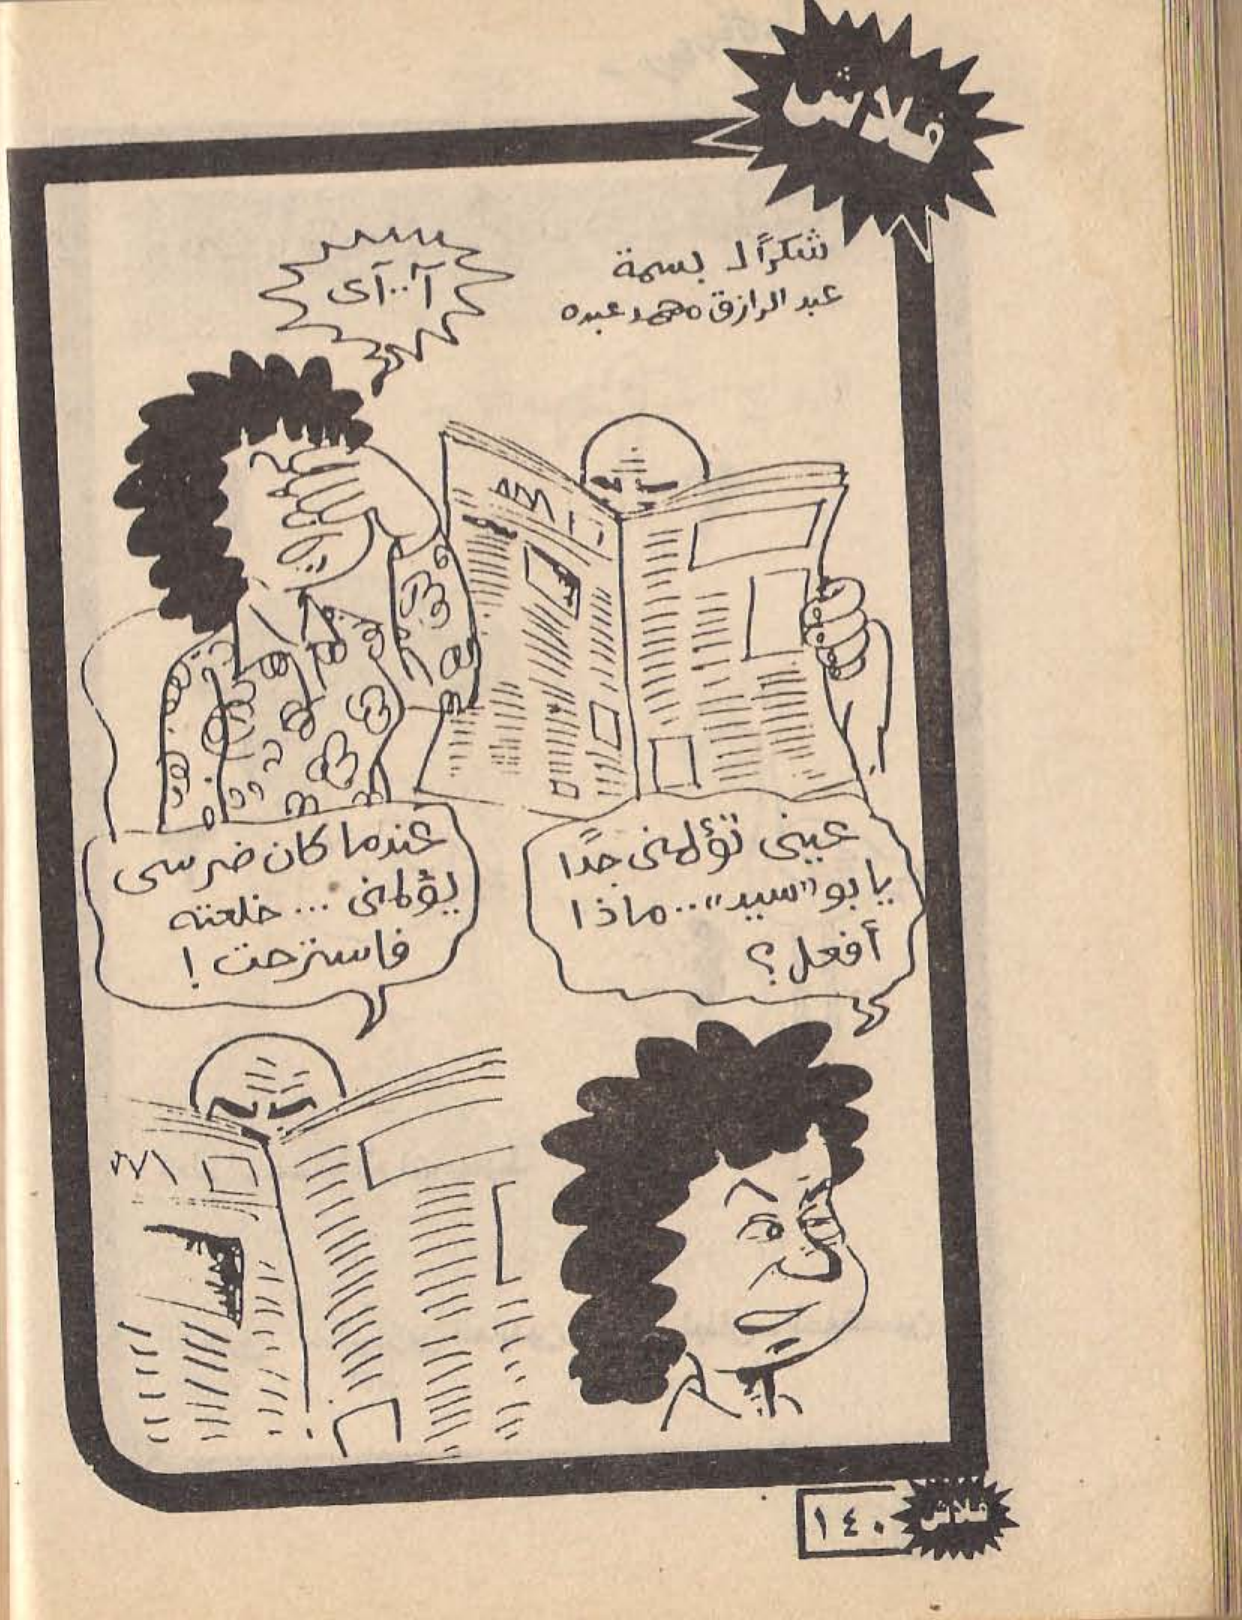 فلاش
شكرًا لـ بسمة
عبد الرازق محمد عبده
آ..آى
عينى تؤلمنى جدًا
يا بو "سيد"..ماذا
أفعل؟
عندما كان ضرسى
يؤلمنى ... خلعته
فاسترحت!
فلاش
١٤٠